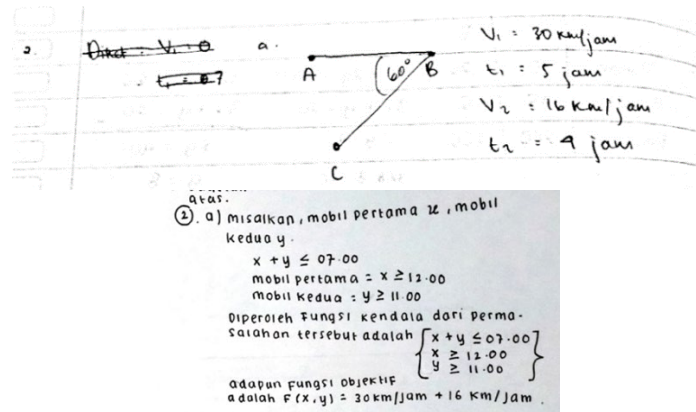 2. Diket : V₁ = 0 a.
t₁ = 07
A 60° B
C
V₁ = 30 km/jam
t₁ = 5 jam
V₂ = 16 km/jam
t₂ = 4 jam
atas.
2. a) misalkan, mobil pertama x, mobil
kedua y.
x + y ≤ 07.00
mobil pertama = x ≥ 12.00
mobil kedua : y ≥ 11.00
Diperoleh Fungsi kendala dari perma-
salahan tersebut adalah { x + y ≤ 07.00
x ≥ 12.00
y ≥ 11.00 }
adapun Fungsi objektif
adalah F(x,y) = 30 km/jam + 16 km/jam.